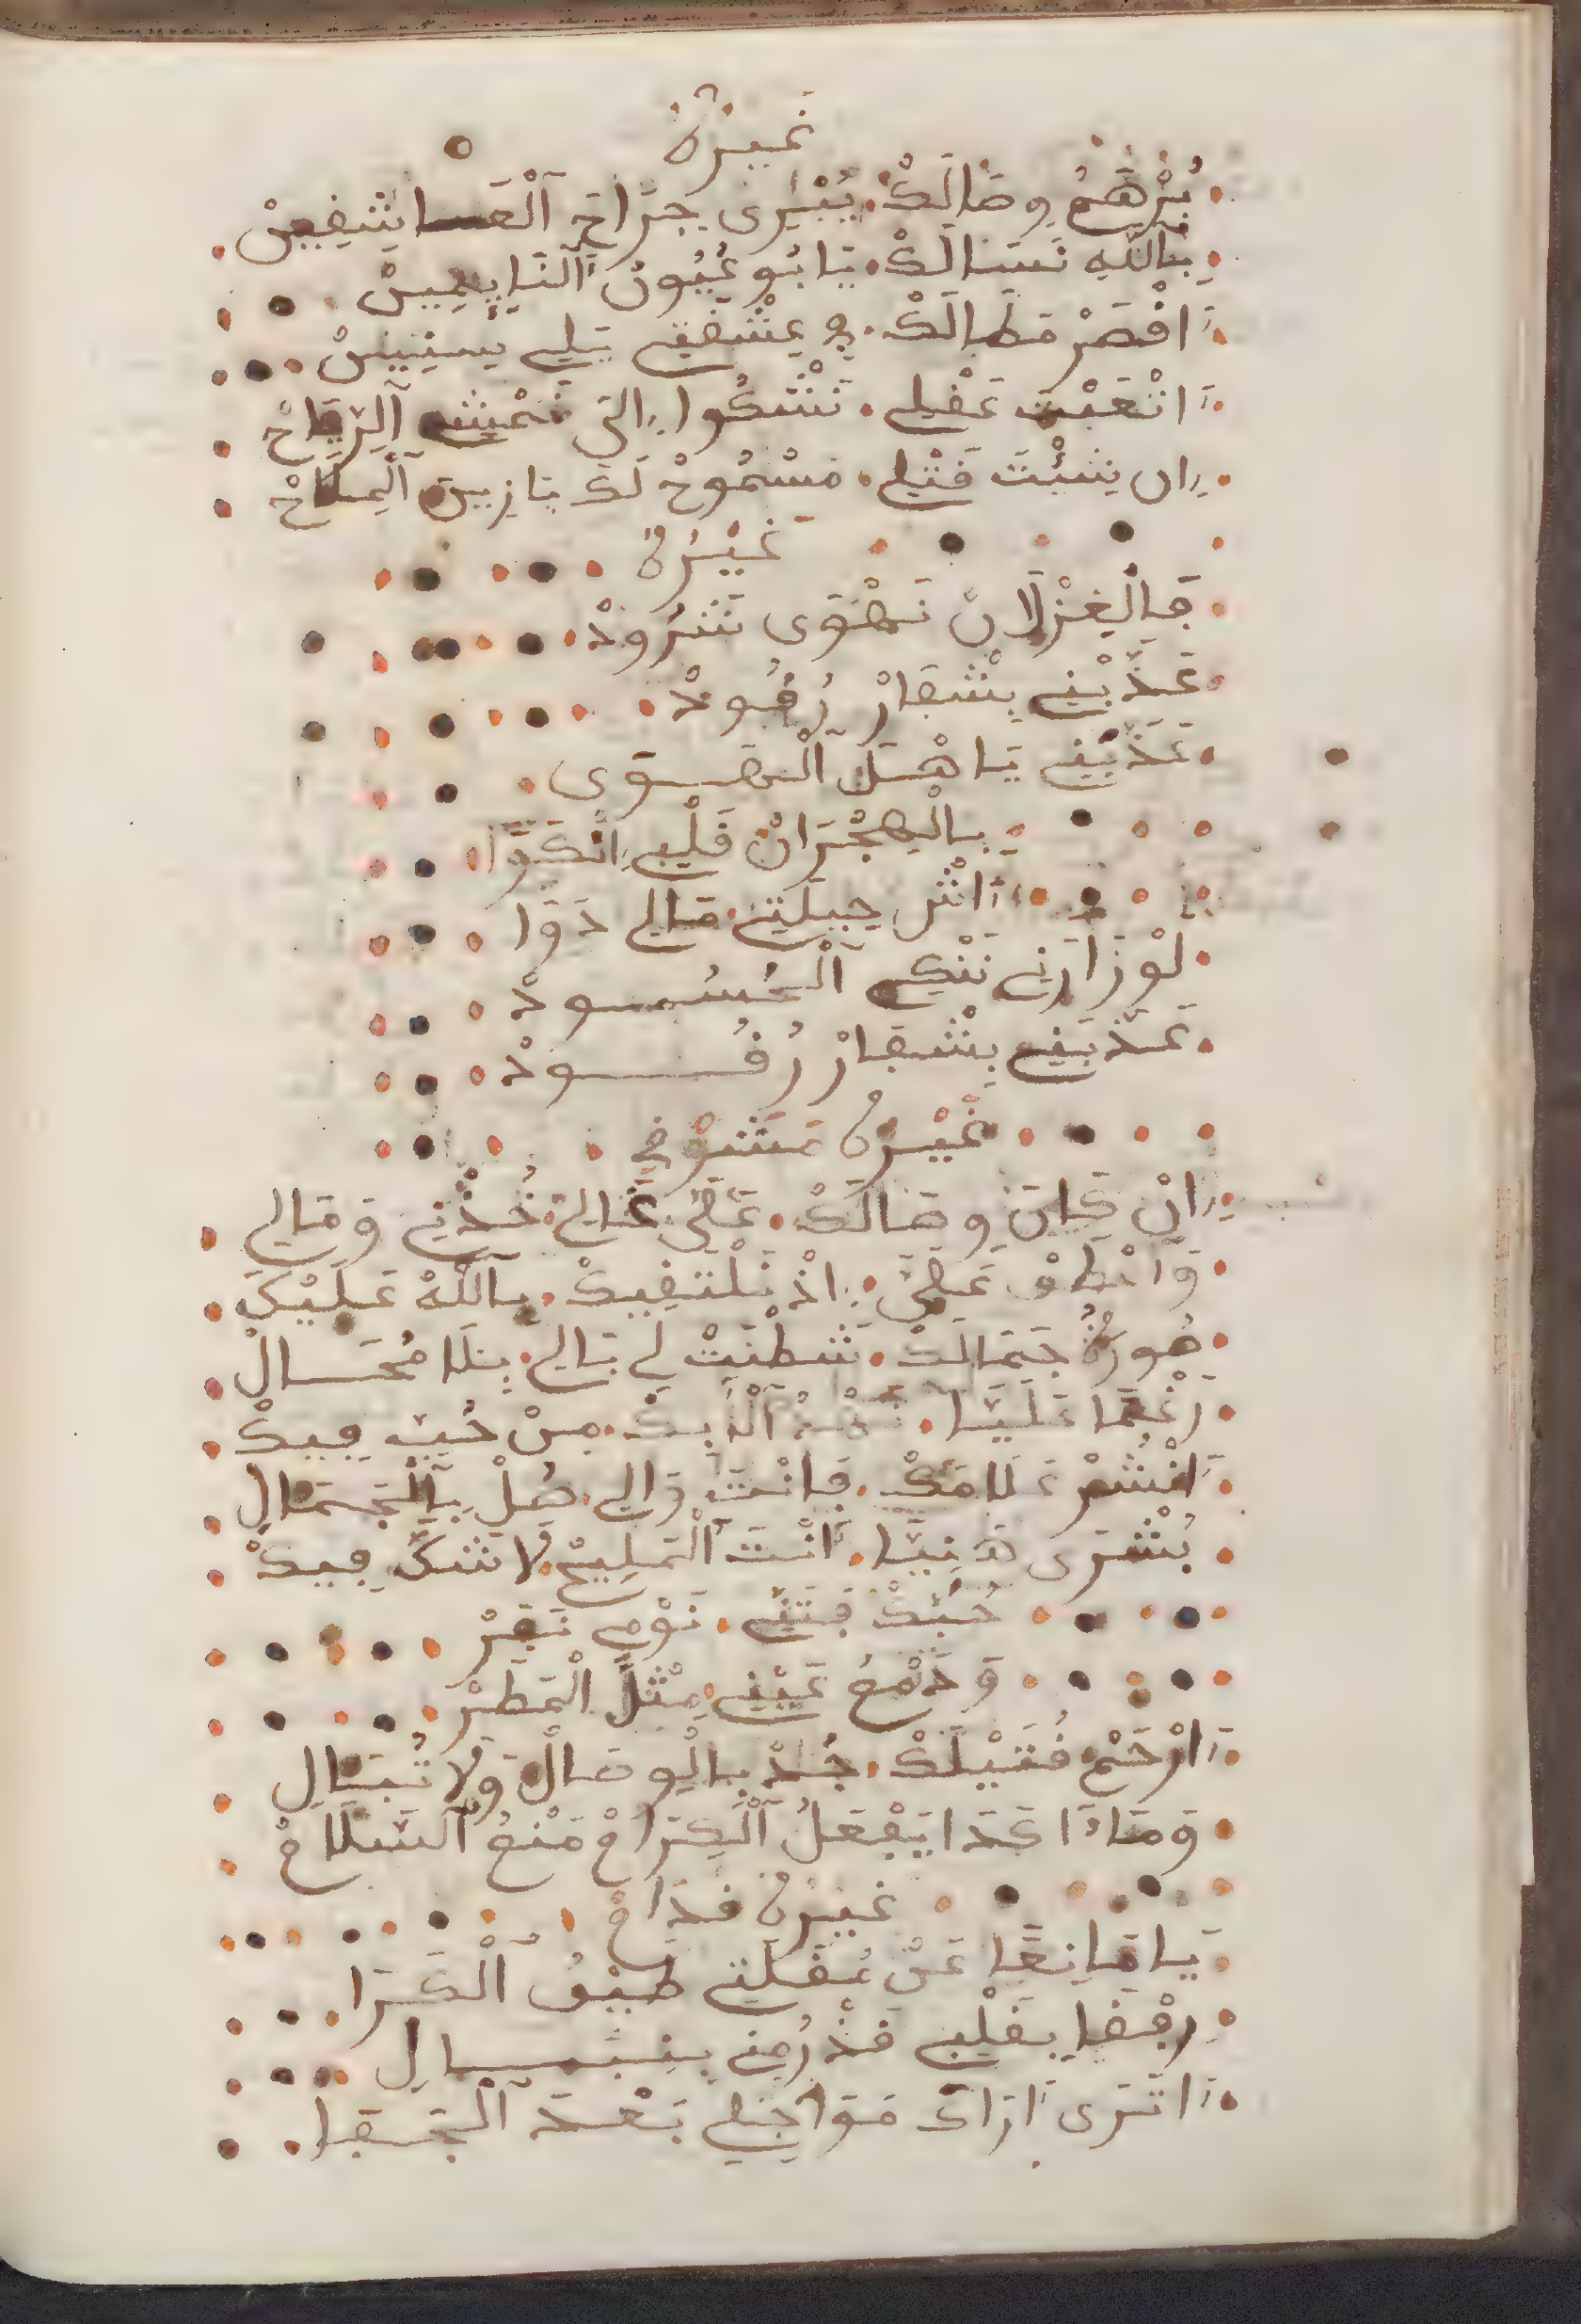 غَيْرُهُ
بُرْهَمُ وِصَالَكْ. يُبْرِى جِرَاحَ اَلْعَاشِقِينْ
بِاللَّهِ نَسَالَكْ. يَابُو عُيُونْ اَلنَّايِمِينْ
اَقْصَرْ مَطَالَكْ. فِي عِشْقِي بِي سِنِينْ
اَتْعَبْتَ عَقْلِي. نَشْكُوا إِلَى شَمْسِ اَلرِّيَاحْ
إِن شِئْتَ قَتْلِي. مَسْمُوحْ لَكَ يَا زِينَ اَلْمِلَاحْ
غَيْرُهُ
فِالْغِزْلَانْ نَهْوَى شَرُودْ
عَذَّبْنِي بِشْفَارْ رُقُودْ
عَذَّبْنِي يَا هْلَ الْهَوَى
بِالْهِجْرَانْ قَلْبِي اِنْكَوَا
اَشْ حِيلَتِي مَالِي دَوَا
لَوْ زَارَنِي نَنْكِي اَلْحُسُودْ
عَذَّبَنِي بِشْفَارْ رُقُودْ
غَيْرُهُ مَشْرْقِي
إِنْ كَانَ وِصَالَكْ. عَلَيَّ غَالِي خُذْنِي وَمَالِي
وَاعْطَوْ عَلَيَّ. إِذْ نَلْتَقِيكْ. بِاللَّهْ عَلَيْكَ
صُورَةُ جَمَالَكْ. شَطْنَتْ لِي بَالِي. بِلَا مُحَالْ
رَغْمًا عَلَيَّا. اَلْأَبَدْ. مِنْ حُبِّي فِيكْ
اَنْشُرْ عَلَامَكْ. فَانْتَ وَالِي. صُلْ بِالْجَمَالِ
بُشْرَى هَنِيَّا. اَنْتَ اَلْمَلِيحْ. لَا شَكَّ فِيكْ
حُبُّكْ فَتَنِّي. نَوْمِي نَفَرْ
وَدَمْعُ عَيْنِي. مِثْلَ الْمَطَرْ
اَرْحَمْ قُتَيْلَكْ. جُدْ بِالْوِصَالْ وَلَا تُبَالِ
وَمَاذَا عَدَا يَفْعَلُ اَلْكِرَامْ مَنْعُ اَلسَّلَامْ
غَيْرُهُ قُدَّامْ
يَا مَانِعًا عَنْ مُقْلَتِي طَيْفُ اَلْكَرَا
رِفْقًا بِقَلْبِي قَدْ رُمِي بِنِبَالِ
اَتَرَى اَرَاكَ مَوَاصِلِي بَعْدَ اَلْجَفَا